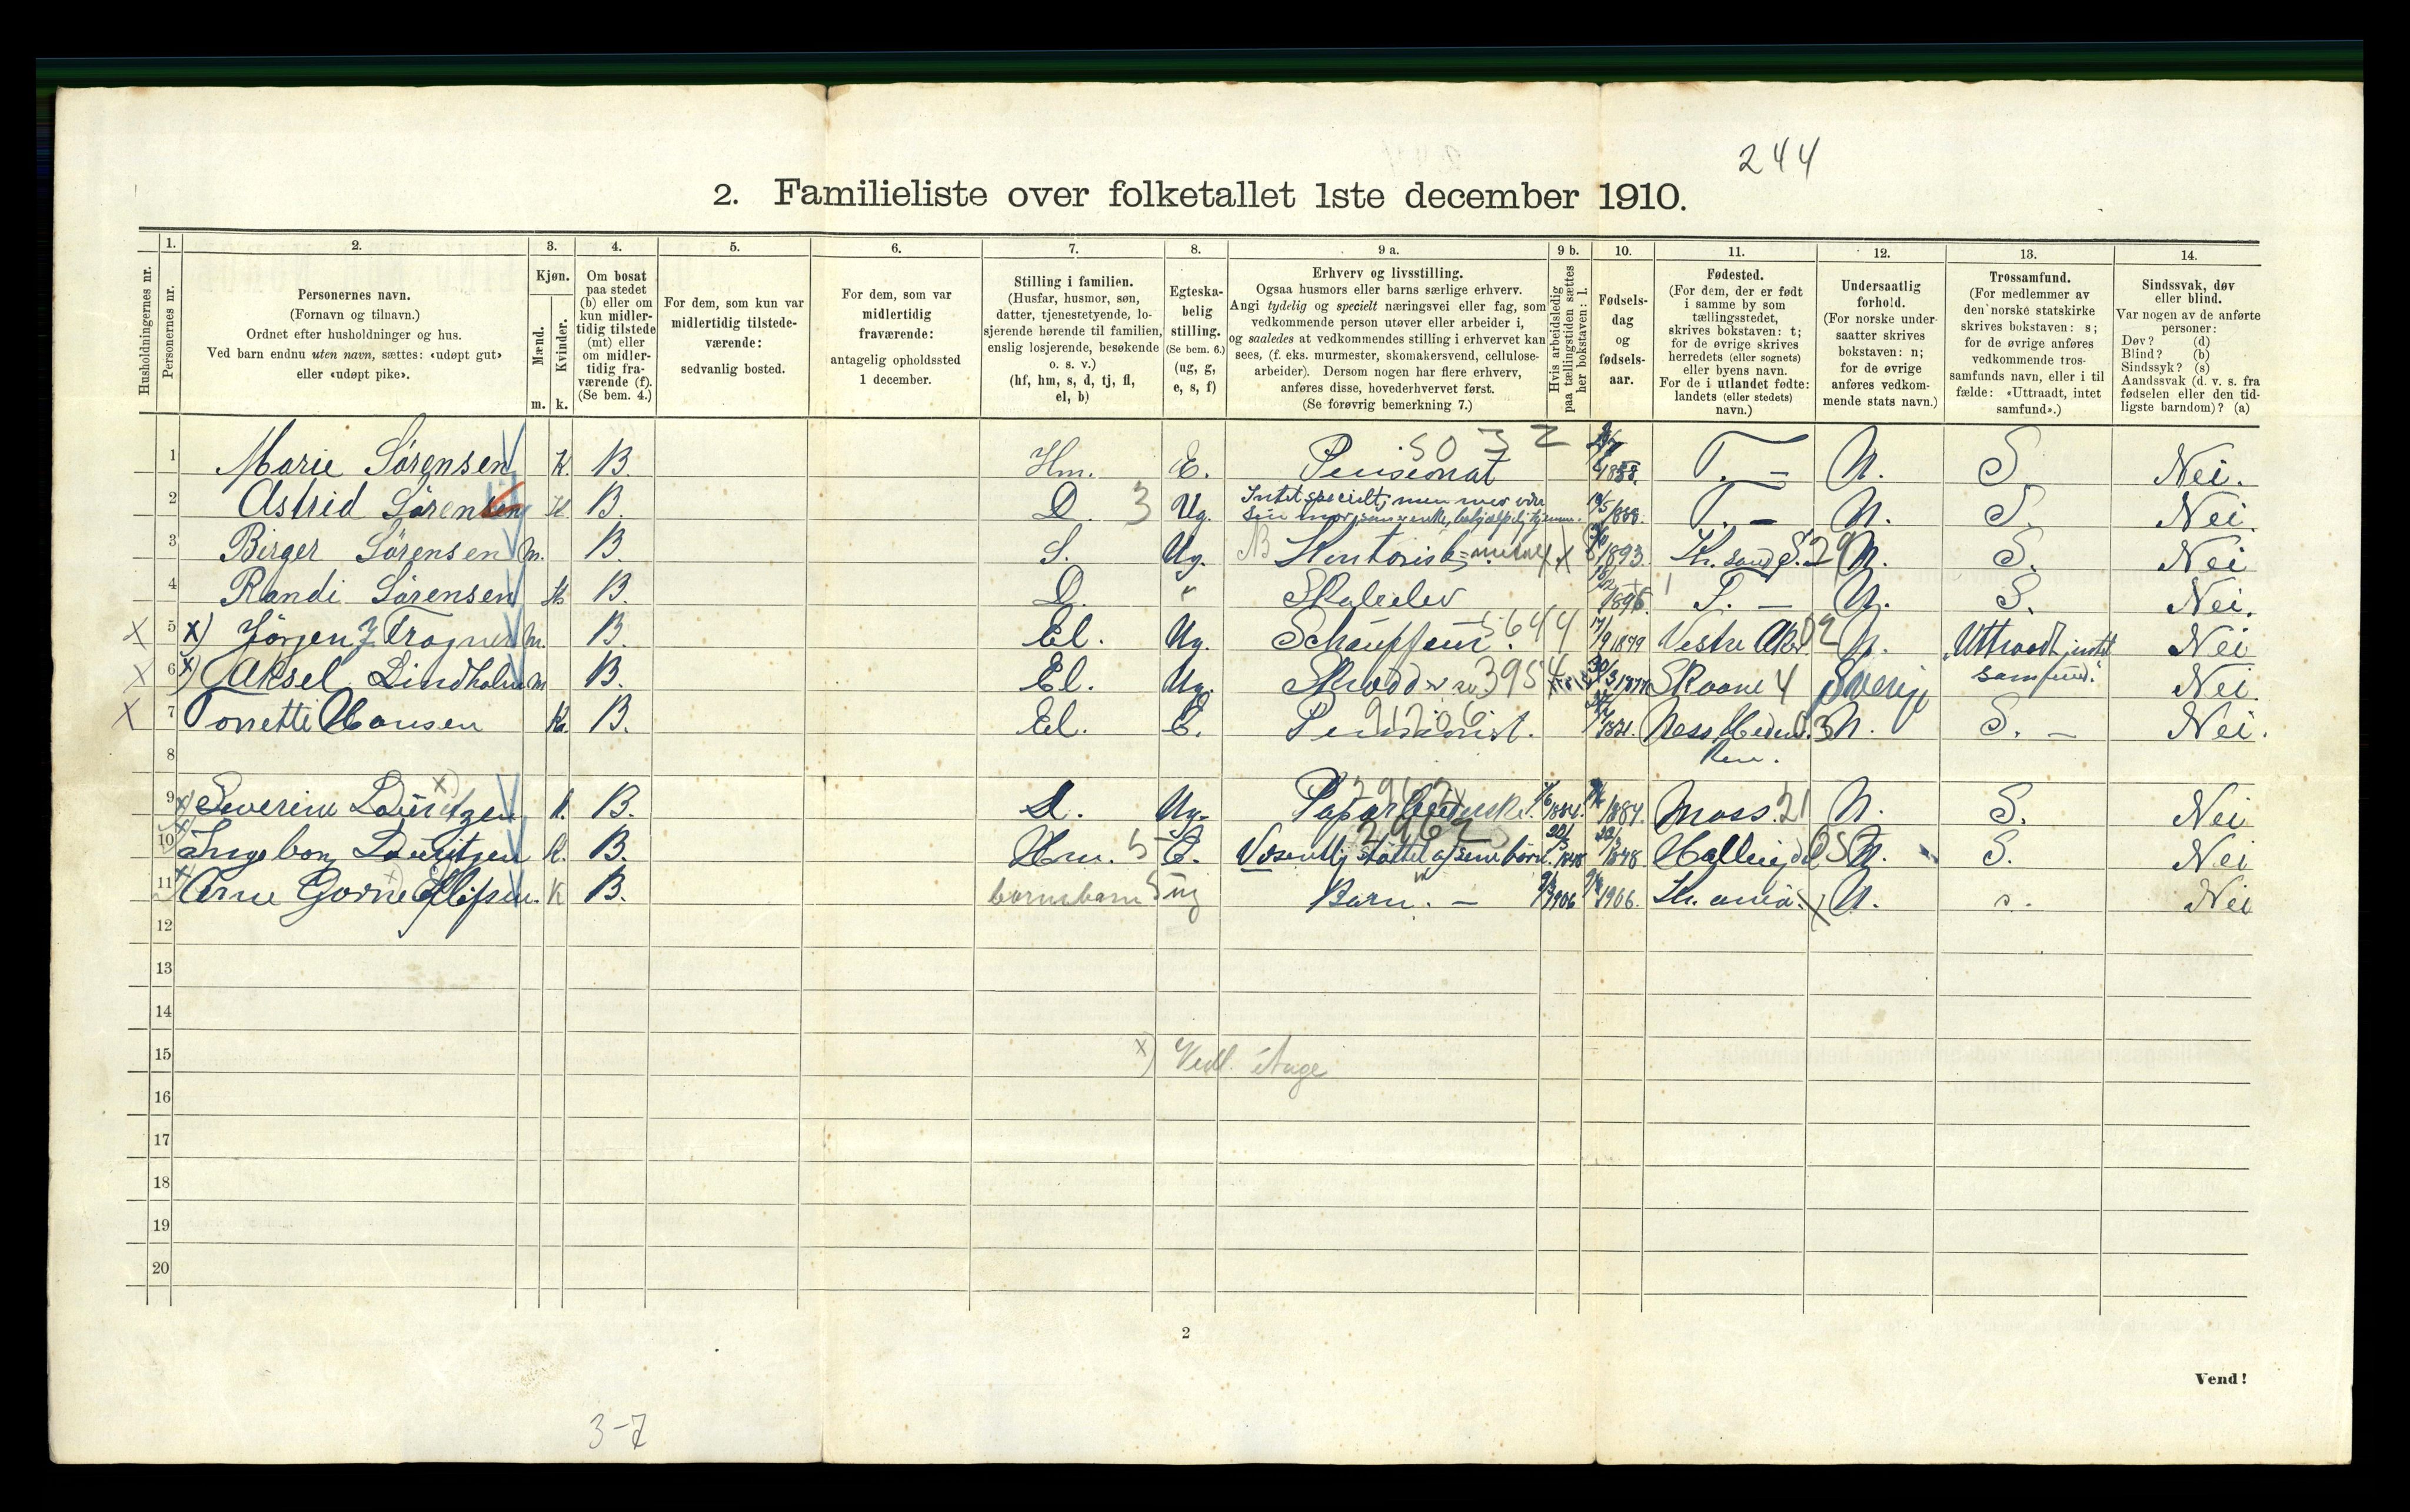 244
2. Familieliste over folketallet 1ste december 1910.
Husholdningernes nr.
1. Personernes nr.
2. Personernes navn.
(Fornavn og tilnavn.)
Ordnet efter husholdninger og hus.
Ved barn endnu uten navn, sættes: «udøpt gut»
eller «udøpt pike».
3. Kjøn.
Mænd. m.
Kvinder. k.
4. Om bosat
paa stedet
(b) eller om
kun midler-
tidig tilstede
(mt) eller
om midler-
tidig fra-
værende (f).
(Se bem. 4.)
5. For dem, som kun var
midlertidig tilstede-
værende:
sedvanlig bosted.
6. For dem, som var
midlertidig
fraværende:
antagelig opholdssted
1 december.
7. Stilling i familien.
(Husfar, husmor, søn,
datter, tjenestetyende, lo-
sjerende hørende til familien,
enslig losjerende, besøkende
o. s. v.)
(hf, hm, s, d, tj, fl,
el, b)
8. Egteska-
belig
stilling.
(Se bem. 6.)
(ug, g,
e, s, f)
9 a. Erhverv og livsstilling.
Ogsaa husmors eller barns særlige erhverv.
Angi tydelig og specielt næringsvei eller fag, som
vedkommende person utøver eller arbeider i,
og saaledes at vedkommendes stilling i erhvervet kan
sees, (f. eks. murmester, skomakersvend, cellulose-
arbeider). Dersom nogen har flere erhverv,
anføres disse, hovederhvervet først.
(Se forøvrig bemerkning 7.)
9 b. Hvis arbeidsledig
paa tællingstiden sættes
her bokstaven: l.
10. Fødsels-
dag
og
fødsels-
aar.
11. Fødested.
(For dem, der er født
i samme by som
tællingsstedet,
skrives bokstaven: t;
for de øvrige skrives
herredets (eller sognets)
eller byens navn.
For de i utlandet fødte:
landets (eller stedets)
navn.)
12. Undersaatlig
forhold.
(For norske under-
saatter skrives
bokstaven: n;
for de øvrige
anføres vedkom-
mende stats navn.)
13. Trossamfund.
(For medlemmer av
den norske statskirke
skrives bokstaven: s;
for de øvrige anføres
vedkommende tros-
samfunds navn, eller i til
fælde: «Uttraadt, intet
samfund».)
14. Sindssvak, døv
eller blind.
Var nogen av de anførte
personer:
Døv? (d)
Blind? (b)
Sindssyk? (s)
Aandssvak (d. v. s. fra
fødselen eller den tid-
ligste barndom)? (a)
1 Marie Sørensen K. B. Hm. E. Pensionat 5032 T. N. S. Nei.
2 Astrid Sørensen K B. D. 3 Ug. Intet specielt, men
sin mor, 1888. T. N. S. Nei.
3 Birger Sørensen M. B. S. Ug. Kontorist 1893. Kr. sand S. N. S. Nei
4 Randi Sørensen K B. D. " Skoleelev T. N. S. Nei.
X 5 x) Jörgen J. Trogner M. B. El. Ug. Schauffeur. 5644 17/9 1879 Vestre Aker 02 N. Uttraadt, intet
samfund. Nei
X 6 x) Aksel Lindholm M B. El. Ug. 3954 30/3 1877 Skaane 4 Sverige Nei.
X 7 Hansen K. B. El. E. Pensionist. 1821. Næss Hedemar
ken. N. S. Nei.
8
9 x) Severine Lauritzen K. B. D. Ug. 2962 1884. Moss. 21 N. S. Nei
10 x) Ingeborg Lauritzen K. B. Hm. 5 E. 2962 Væsentlig støttet af sine børn. 1848 Hallingdal N. S. Nei
11 x) K B. barnebarn 5 ug Barn. 1906 1906. Kr.ania. N. s. Nei
12
13
14
15 x) Vedl. étage
16
17
18
19
20
2
Vend!
3-7